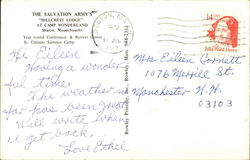 THE SALVATION ARMY'S
"HILLCREST LODGE"
AT CAMP WONDERLAND
Sharon, Massachusetts
Year round Conference & Retreat Center
St. Citizens Summer Camp
Hi Eileen
Having a wonder-
ful time.
The weather so
far has been great
Will write when
u get back.
Love Ethel
14
Julia Ward Howe
Mrs Eileen Cornett
1076 Merrill St.
Manchester N.H.
03103